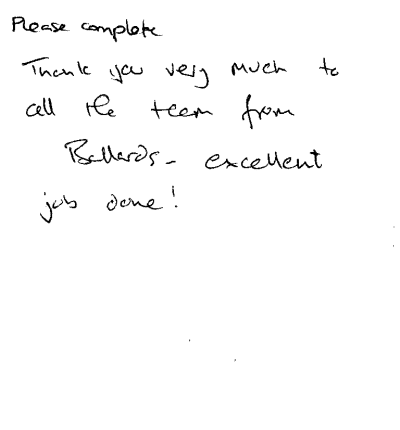 Please complete
Thank you very much to
all the team from
Ballards - excellent
job done!